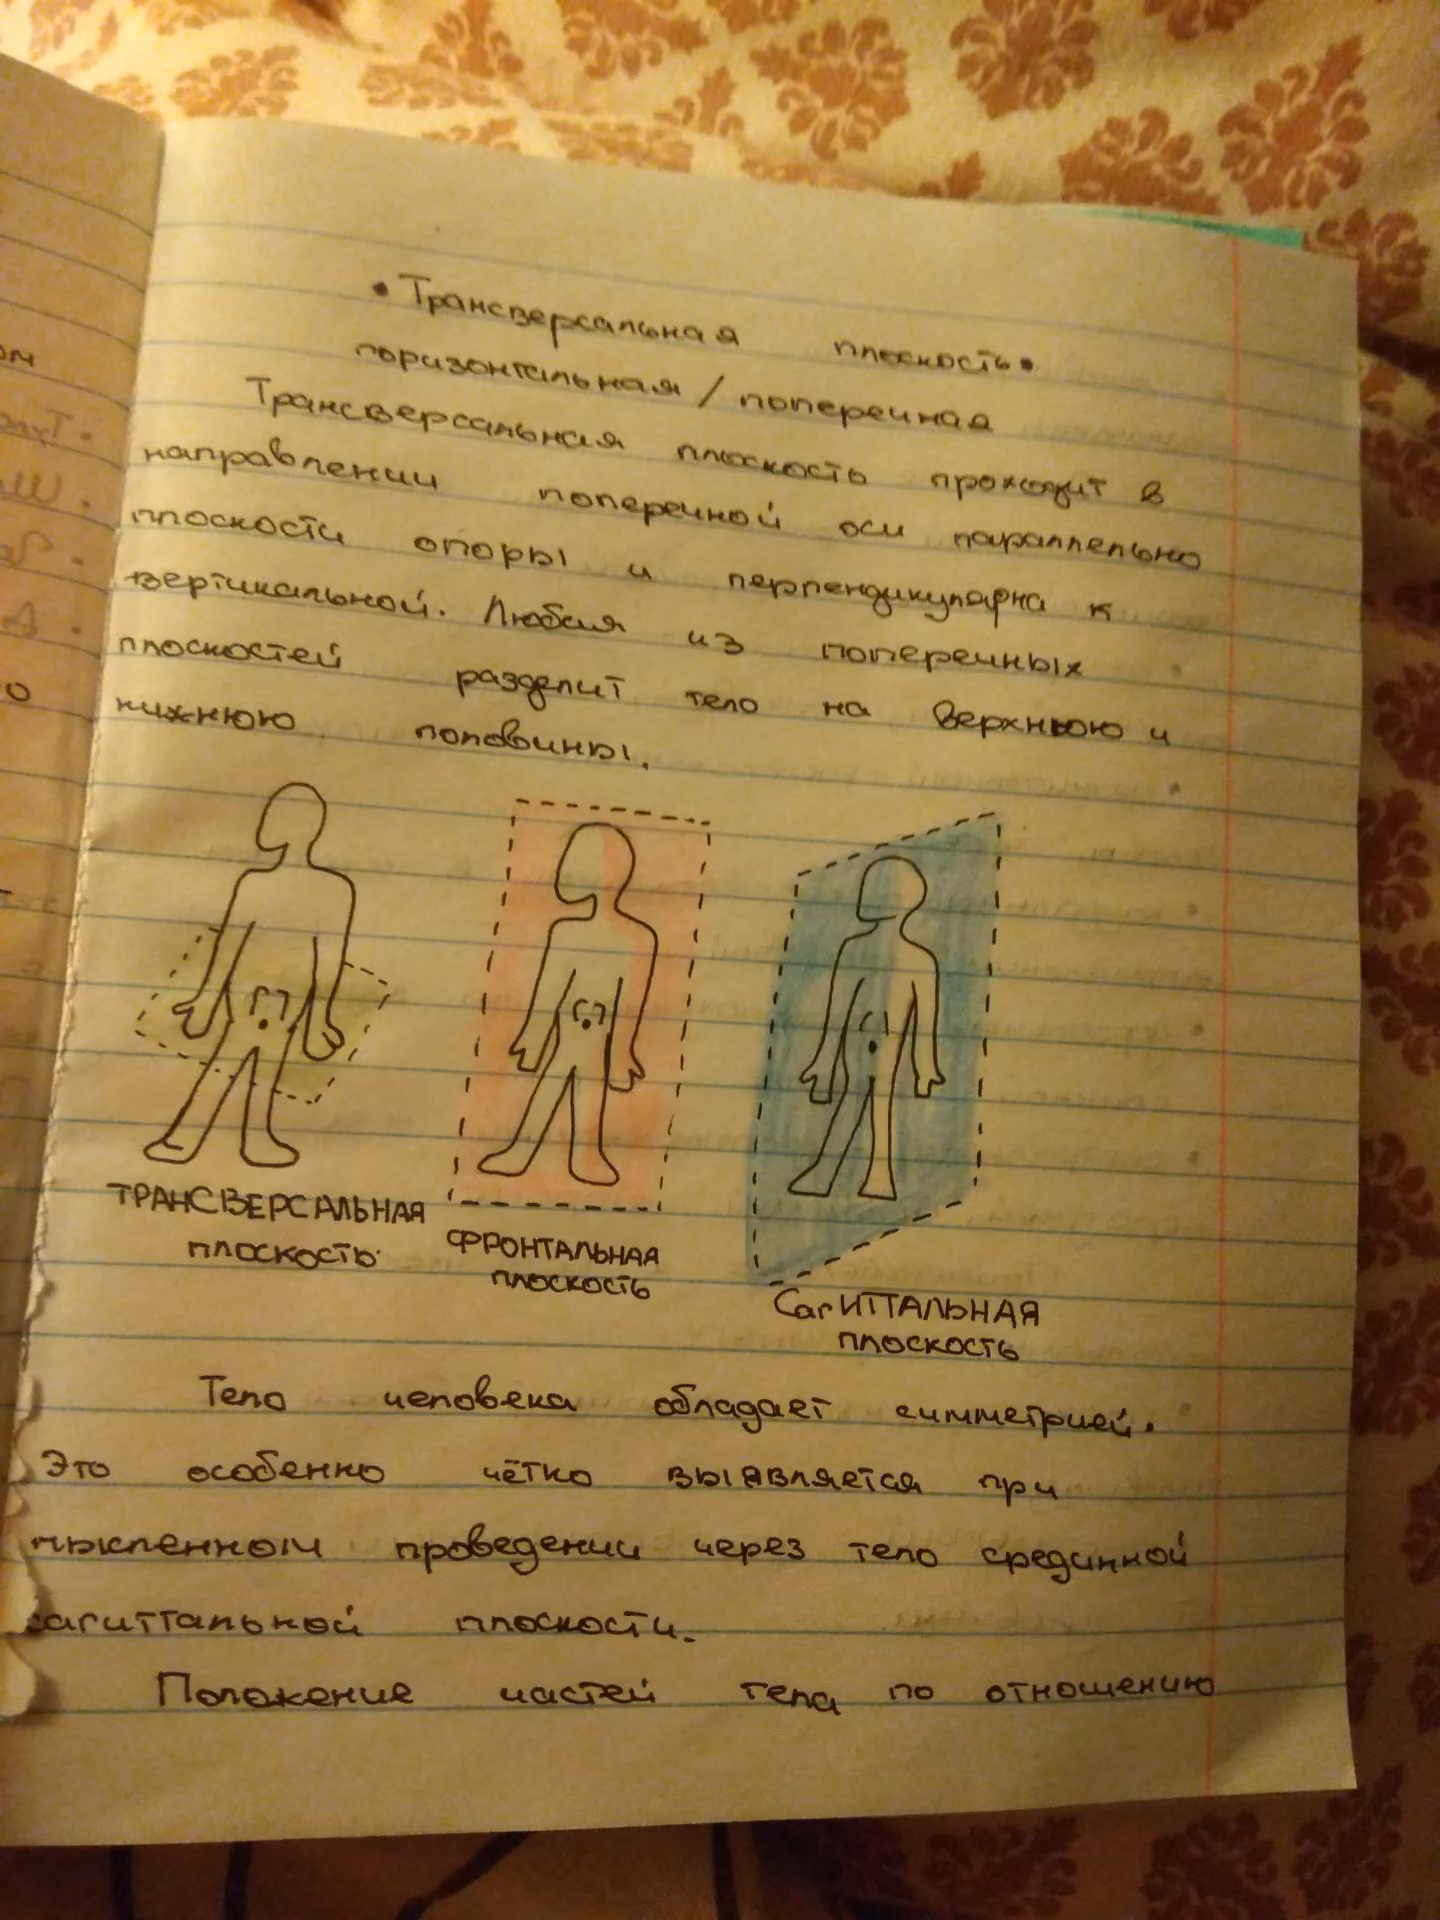 • Трансверсальная плоскость •
горизонтальная / поперечная
Трансверсальная плоскость проходит в
направлении поперечной оси параллельно
плоскости опоры и перпендикулярна к
вертикальной. Любая из поперечных
плоскостей разделит тело на верхнюю и
нижнюю половины.
ТРАНСВЕРСАЛЬНАЯ
плоскость
ФРОНТАЛЬНАЯ
плоскость
СагИТТАЛЬНАЯ
плоскость
Тело человека обладает симметрией.
Это особенно чётко выявляется при
мысленном проведении через тело срединной
сагиттальной плоскости.
Положение частей тела по отношению